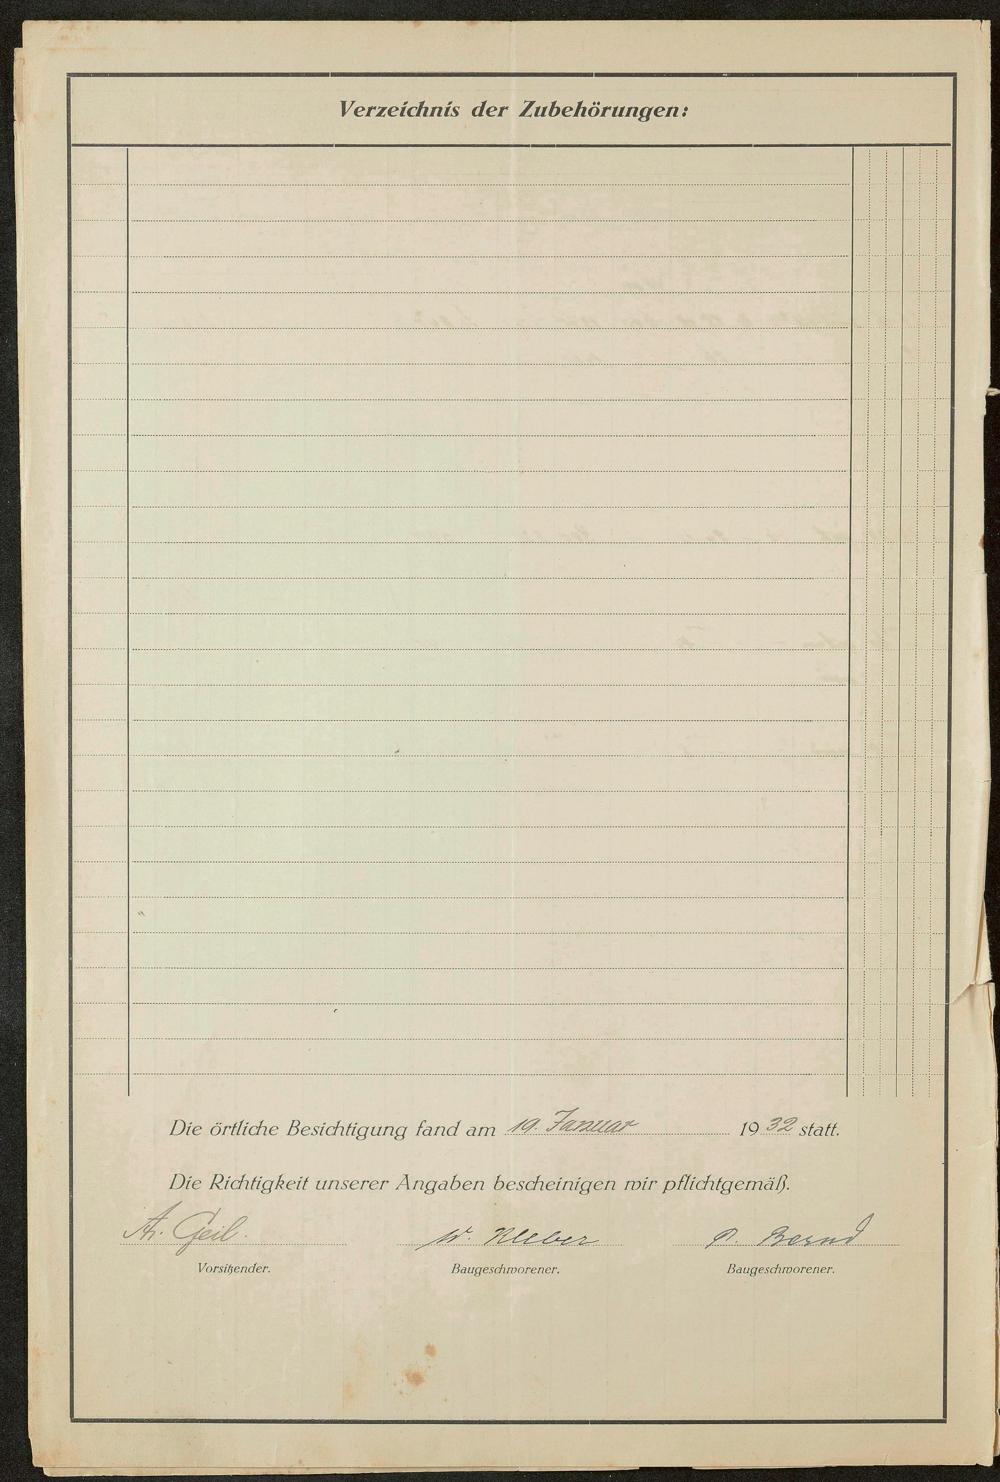 Verzeichnis der Zubehörungen:
Die örtliche Besichtigung fand am 19. Januar 1932 statt.
Die Richtigkeit unserer Angaben bescheinigen wir pflichtgemäß.
Geil. W. Kleber P. Bernd
Vorsitzender. Baugeschworener. Baugeschworener.